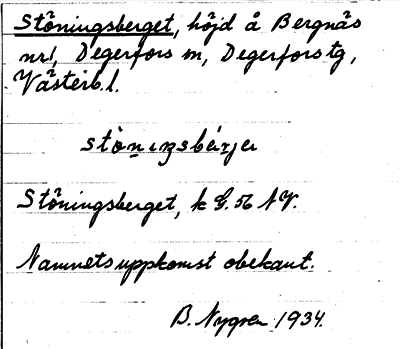 Stöningsberget, höjd å Bergnäs
nr 1, Degerfors sn, Degerfors tg,
Västerb. l.
Stöningsberget, k G. 56 NV.
Namnets uppkomst obekant.
B. Nygren 1934.